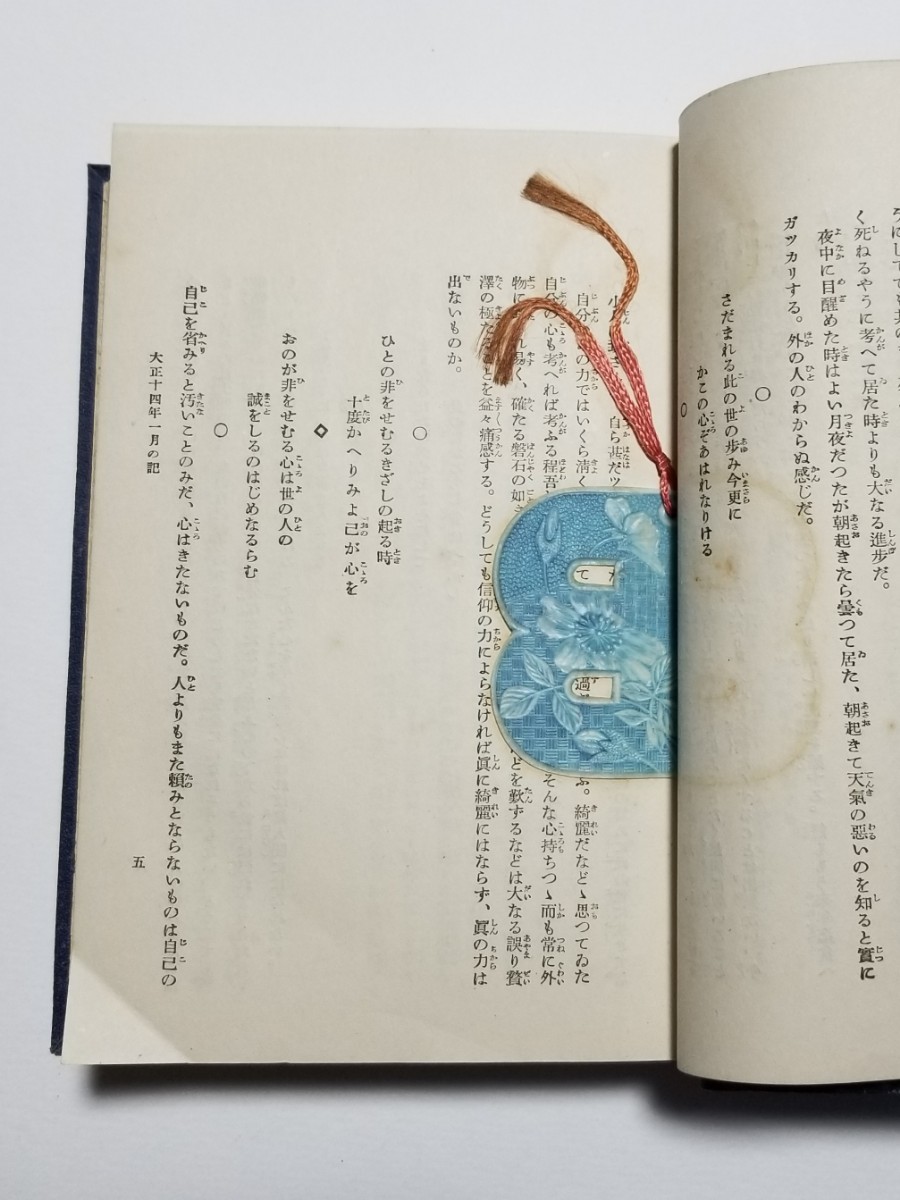 く死ねるやうに考へて居た時よりも大なる進步だ。
夜中に目醒めた時はよい月夜だつたが朝起きたら曇つて居た、朝起きて天氣の惡いのを知ると實に
ガツカリする。外の人のわからぬ感じだ。
○
さだまれる此の世の步み今更に
かこの心ぞあはれなりける
○
自ら甚だツ
自分の力ではいくら淸く 綺麗だなどゝ思つてゐた
自分の心も考へれば考ふる程吾 そんな心持ちつゝ而も常に外
物に 易く、確たる磐石の如 どを歎ずるなどは大なる誤り贅
澤の極たることを益々痛感する。どうしても信仰の力によらなければ眞に綺麗にはならず、眞の力は
出ないものか。
○
ひとの非をせむるきざしの起る時
十度かへりみよ己が心を
◇
おのが非をせむる心は世の人の
誠をしるのはじめなるらむ
○
自己を省みると汚いことのみだ、心はきたないものだ。人よりもまた賴みとならないものは自己の
大正十四年一月の記
五